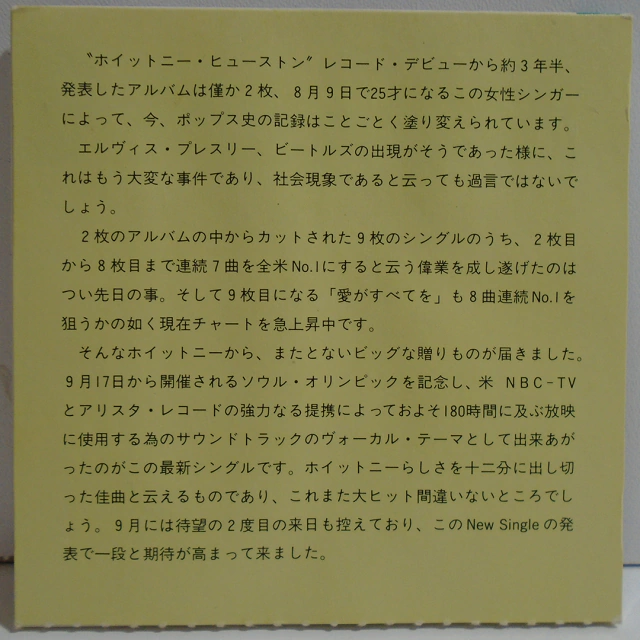 〝ホイットニー・ヒューストン〟レコード・デビューから約3年半、
発表したアルバムは僅か2枚、8月9日で25才になるこの女性シンガー
によって、今、ポップス史の記録はことごとく塗り変えられています。
エルヴィス・プレスリー、ビートルズの出現がそうであった様に、こ
れはもう大変な事件であり、社会現象であると云っても過言ではないで
しょう。
2枚のアルバムの中からカットされた9枚のシングルのうち、2枚目
から8枚目まで連続7曲を全米No.1にすると云う偉業を成し遂げたのは
つい先日の事。そして9枚目になる「愛がすべてを」も8曲連続No.1を
狙うかの如く現在チャートを急上昇中です。
そんなホイットニーから、またとないビッグな贈りものが届きました。
9月17日から開催されるソウル・オリンピックを記念し、米 NBC-TV
とアリスタ・レコードの強力なる提携によっておよそ180時間に及ぶ放映
に使用する為のサウンドトラックのヴォーカル・テーマとして出来あが
ったのがこの最新シングルです。ホイットニーらしさを十二分に出し切
った佳曲と云えるものであり、これまた大ヒット間違いないところでし
ょう。9月には待望の2度目の来日も控えており、このNew Singleの発
表で一段と期待が高まって来ました。